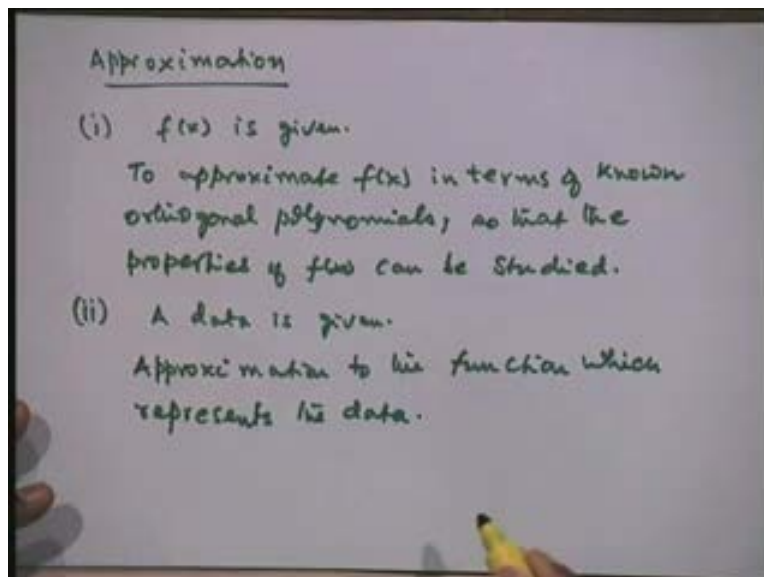 Approximation
(i) f(x) is given.
To approximate f(x) in terms of known
orthogonal polynomials, so that the
properties of f(x) can be studied.
(ii) A data is given.
Approximation to the function which
represents the data.